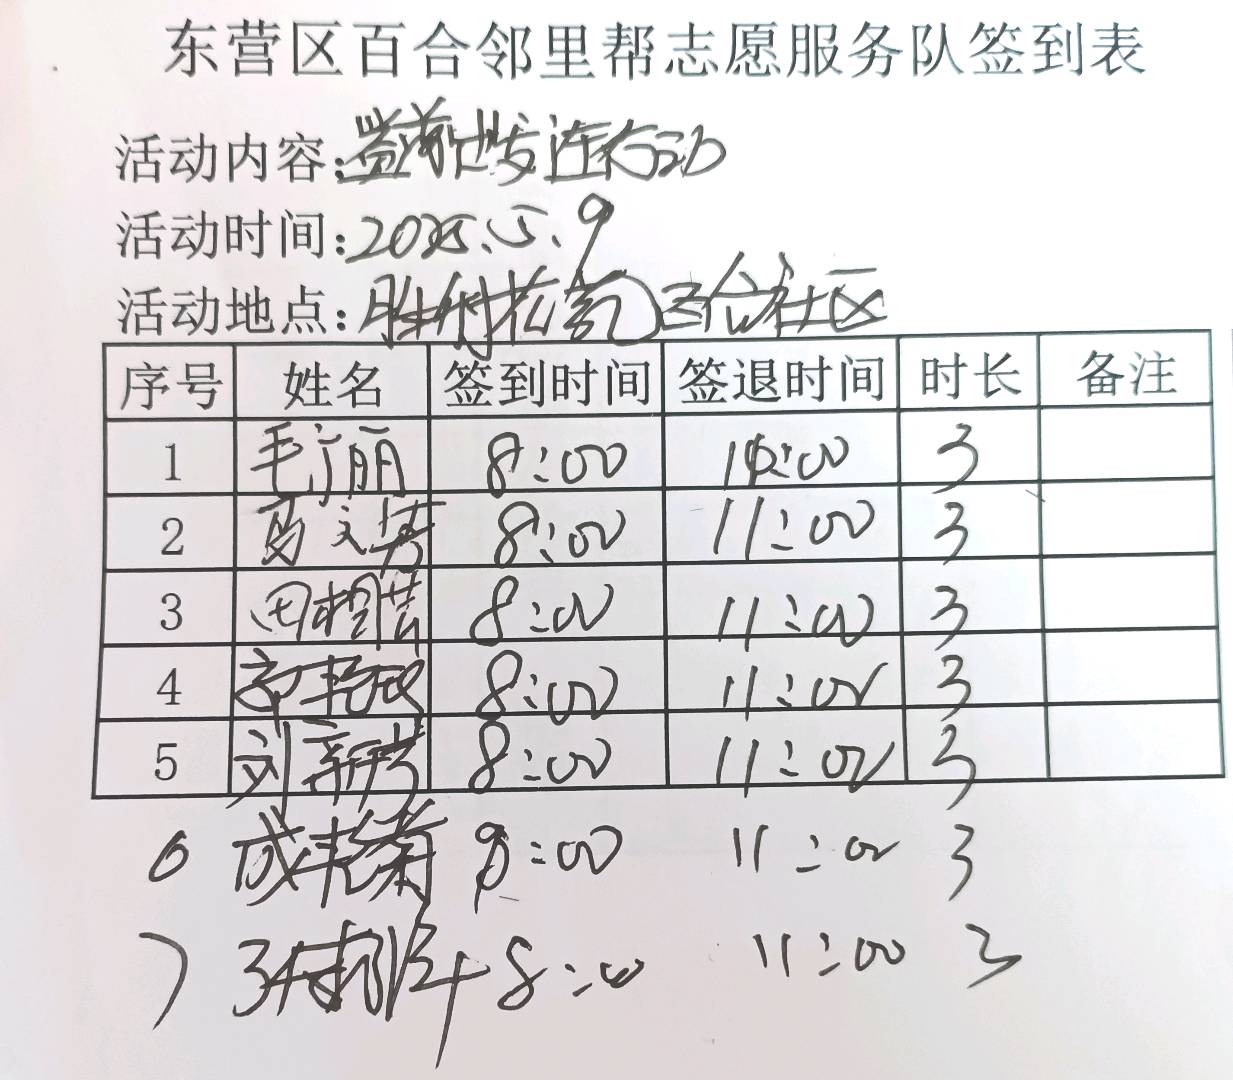 东营区百合邻里帮志愿服务队签到表
活动内容:
活动时间:2025.5.9
活动地点:胜利花苑百合社区
序号 姓名 签到时间 签退时间 时长 备注
1 毛广丽 8:00 :00 3
2 文芳 8:00 11:00 3
3 田 8:00 11:00 3
4 8:00 11:00 3
5 刘 8:00 11:00 3
6 成艳菊 8:00 11:00 3
7 8:00 11:00 3